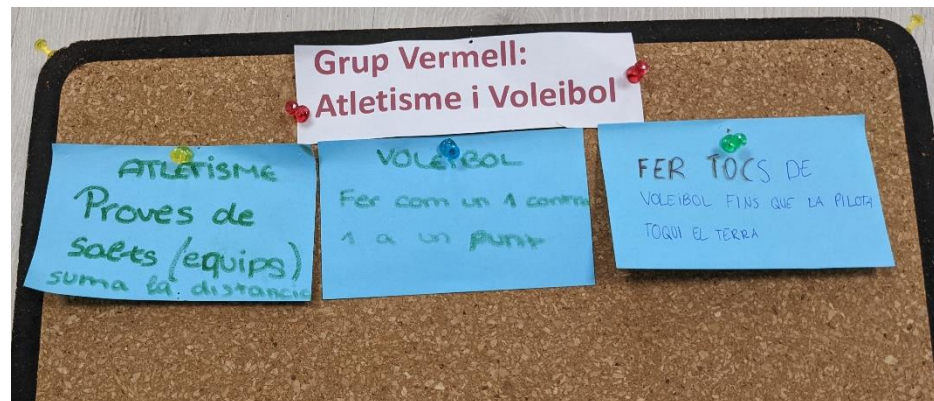 Grup Vermell:
Atletisme i Voleibol
ATLETISME
Proves de
salts (equips)
suma la distancia
VOLEIBOL
Fer com un 1 contra
1 a un punt
FER TOCS DE
VOLEIBOL FINS QUE LA PILOTA
TOQUI EL TERRA